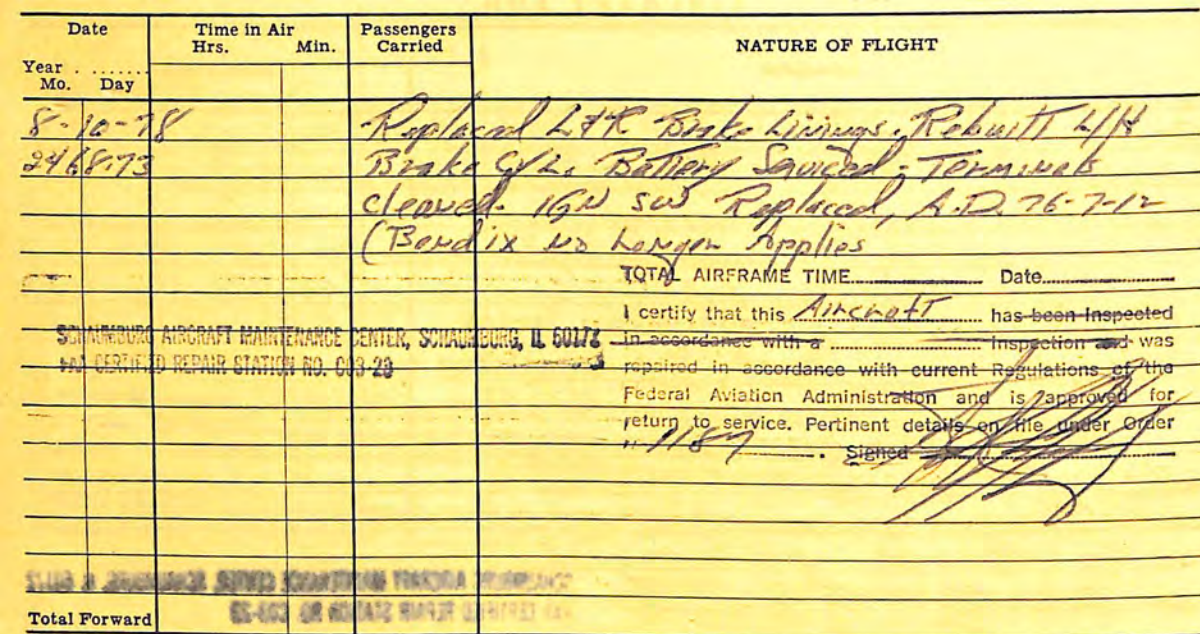 Date
Time in Air
Passengers Carried
NATURE OF FLIGHT
Year
Mo. Day
Hrs. Min.
8-10-78 Replaced L&R Brake Linings. Rebuilt L/H
2468.73 Brake Cyl. Battery Serviced - Terminals
cleaned. IGN SW Replaced, A.D. 76-7-12
(Bendix no Longer Applies
TOTAL AIRFRAME TIME............ Date............
I certify that this Aircraft has been Inspected
in accordance with a ............ Inspection and was
repaired in accordance with current Regulations of the
Federal Aviation Administration and is approved for
return to service. Pertinent details on file under Order
1187 . Signed
SCHAUMBURG AIRCRAFT MAINTENANCE CENTER, SCHAUMBURG, IL 60172
FAA CERTIFIED REPAIR STATION NO. C03-20
Total Forward